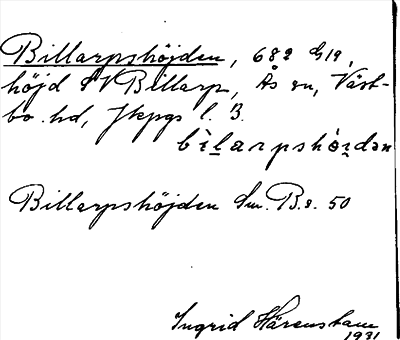 Billarpshöjden, 682 G19,
höjd SV Billarp, Ås sn, Väst-
bo hd, Jkpgs l. B.
bìḷarpshö̀i̯dən
Billarpshöjden Sm. B.s. 50
Ingrid Härenstam
1931